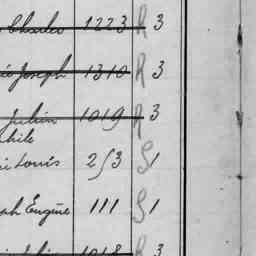 Charles 1223 R 3
Joseph 1310 R 3
Julien 1019 R 3
hile
Louis 253 G 1
ph Eugène 111 G 1
1018 R 3